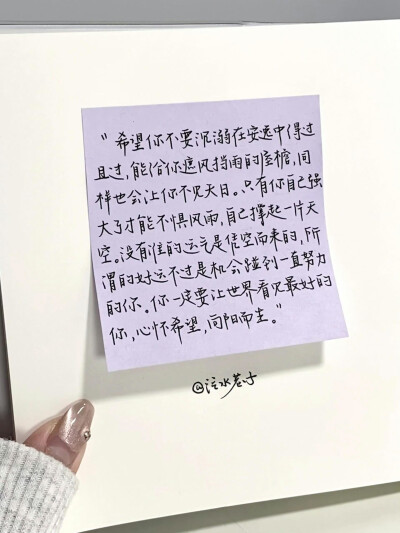 “希望你不要沉溺在安逸中得过
且过,能给你遮风挡雨的屋檐,同
样也会让你不见天日。只有你自己强
大了才能不惧风雨,自己撑起一片天
空。没有谁的运气是凭空而来的,所
谓的好运不过是机会碰到一直努力
的你。你一定要让世界看见最好的
你,心怀希望,向阳而生。”
@注水